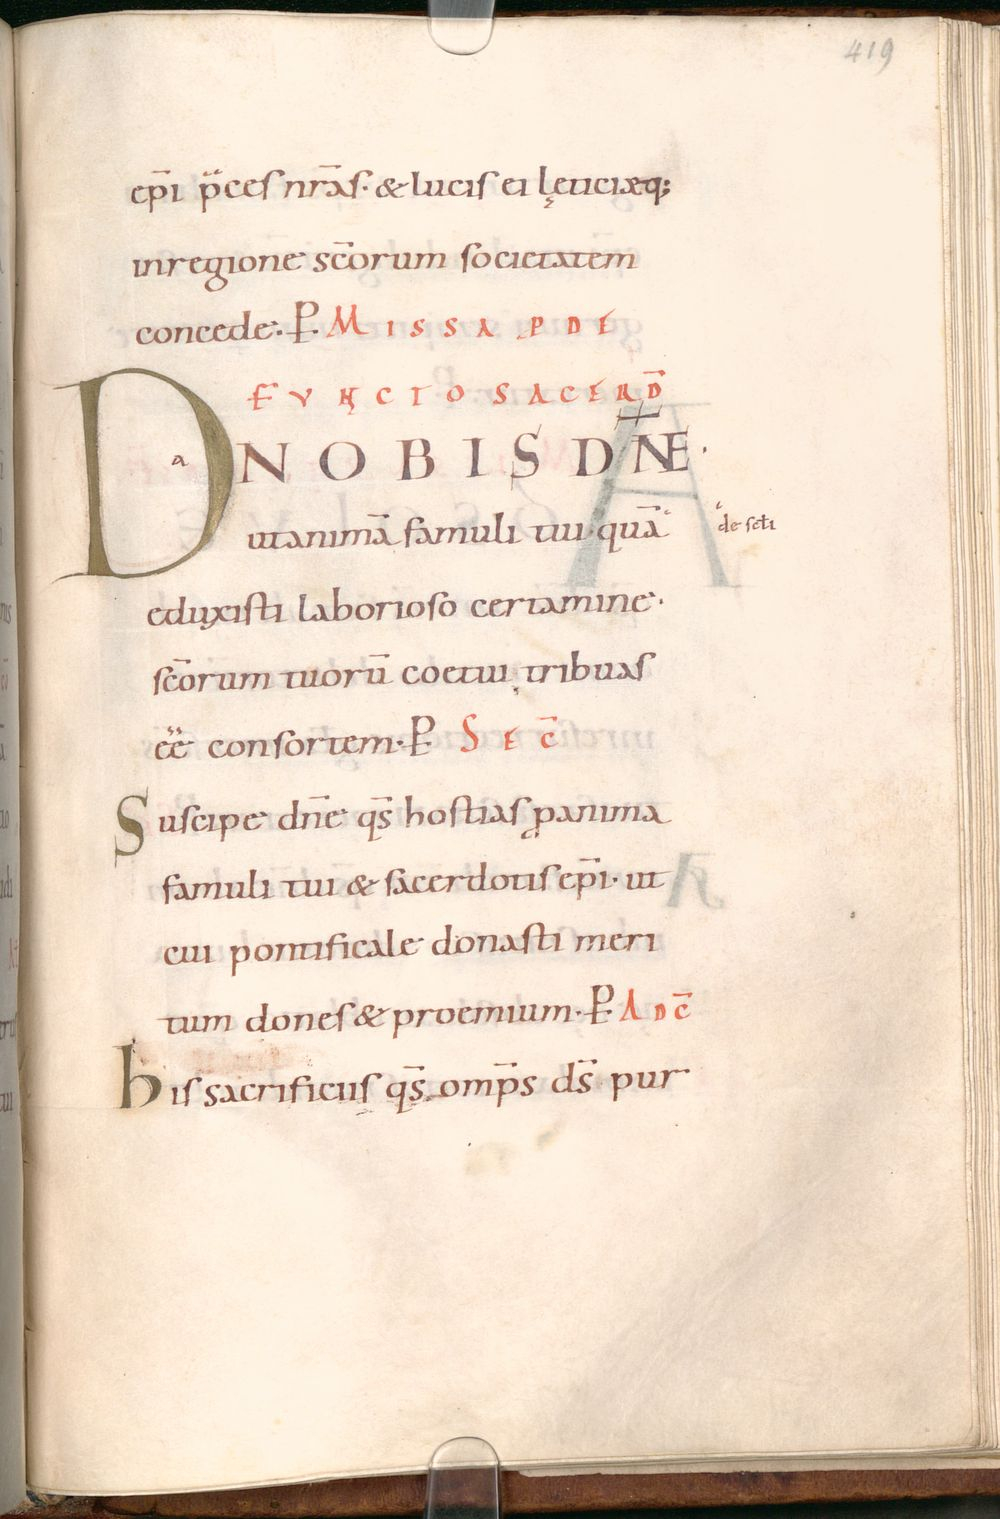 419
ep̄i p̄ces nr̄as· & lucis ei lęticiæq;
in regione sc̄orum societatem
concede· P MISSA P DE
FVNCTO SACERD̄
DA NOBIS DN̄E·
ut animā famuli tui· quā de scłi
eduxisti laborioso certamine·
sc̄orum tuorū coetui tribuas
ee̅ consortem· P SEC̄
Suscipe dn̄e qs̄ hostias ꝓ anima
famuli tui & sacerdotis ep̄i· ut
cui pontificale donasti meri
tum dones & proemium· P ADC̄
his sacrificiis qs̄ omp̄s ds̄ pur